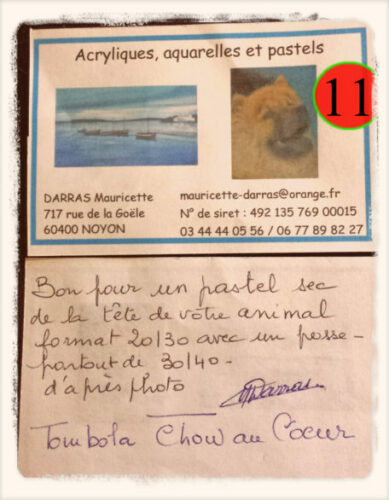 Acryliques, aquarelles et pastels
11
DARRAS Mauricette
717 rue de la Goële
60400 NOYON
mauricette-darras@orange.fr
N° de siret : 492 135 769 00015
03 44 44 05 56 / 06 77 89 82 27
Bon pour un pastel sec
de la tête de votre animal
format 20/30 avec un passe-
partout de 30/40-
d'après photo
MDarras
Tombola Chow au Coeur